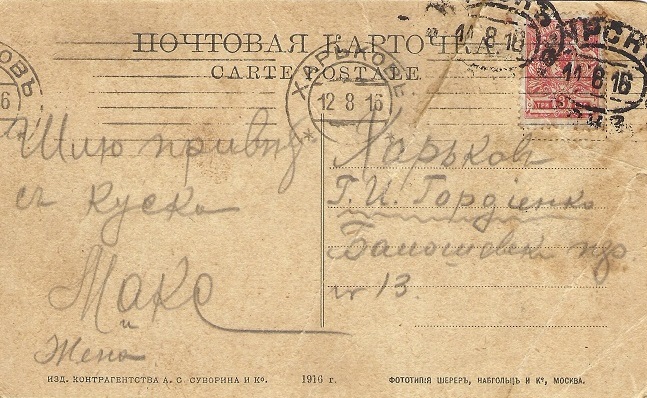 ПОЧТОВАЯ КАРТОЧКА
CARTE POSTALE
ХАРЬКОВЪ
12 8 16
11 8 16
11 8 16
ТРИ 3
Шлю привѣт
съ Курска
Макс
и
Женя
Харьковъ
Г. И. Гордіенко
пер.
№ 13.
ИЗД. КОНТРАГЕНТСТВА А. С. СУВОРИНА И Ко.
1916 г.
ФОТОТИПІЯ ШЕРЕРЪ, НАБГОЛЬЦЪ И Ко, МОСКВА.